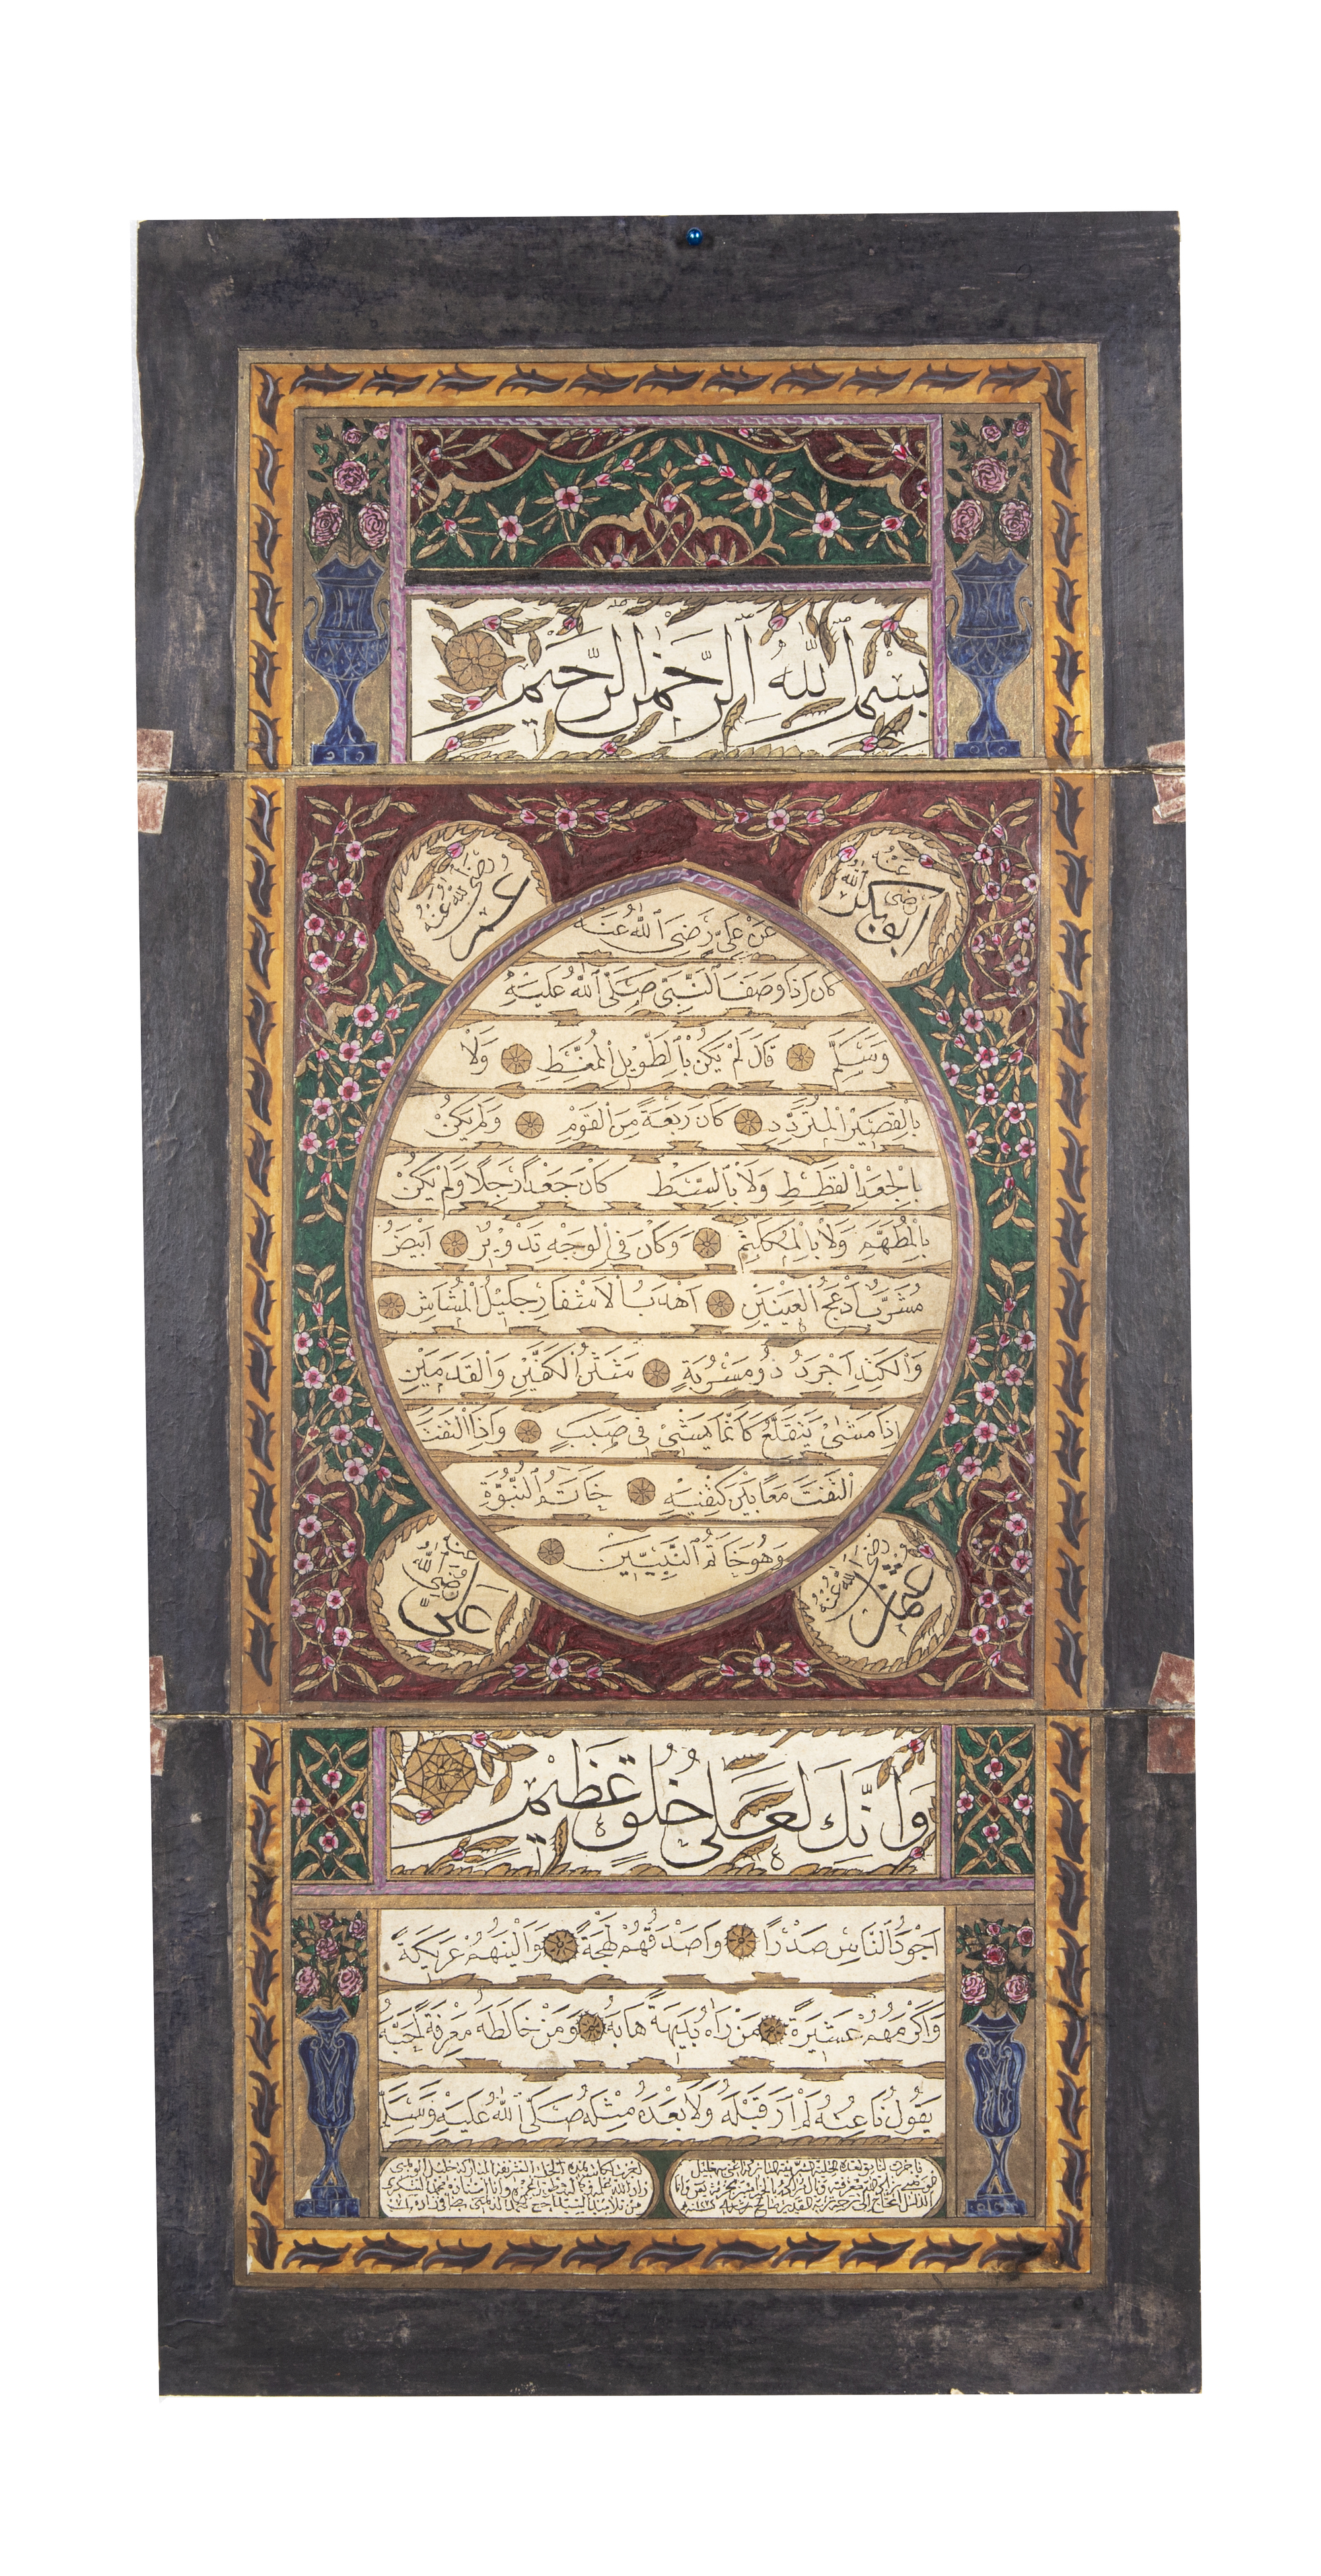 بسم الله الرحمن الرحيم
ابو بكر رضى الله عنه
عمر رضى الله عنه
عن على رضى الله عنه
كان اذا وصف النبى صلى الله عليه
وسلم قال لم يكن بالطويل الممغط ولا
بالقصير المتردد كان ربعة من القوم ولم يكن
بالجعد القطط ولا بالسبط كان جعدا رجلا ولم يكن
بالمطهم ولا بالمكلثم وكان فى الوجه تدوير ابيض
مشرب ادعج العينين اهدب الاشفار جليل المشاش
والكتد اجرد ذو مسربة شثن الكفين والقدمين
اذا مشى يتقلع كانما يمشى فى صبب واذا التفت
التفت معا بين كتفيه خاتم النبوة
وهو خاتم النبيين
عثمان رضى الله عنه
على رضى الله عنه
وانك لعلى خلق عظيم
اجود الناس صدرا واصدقهم لهجة والينهم عريكة
واكرمهم عشيرة من راه بديهة هابه ومن خالطه معرفة احبه
يقول ناعته لم ار قبله ولا بعده مثله صلى الله عليه وسلم